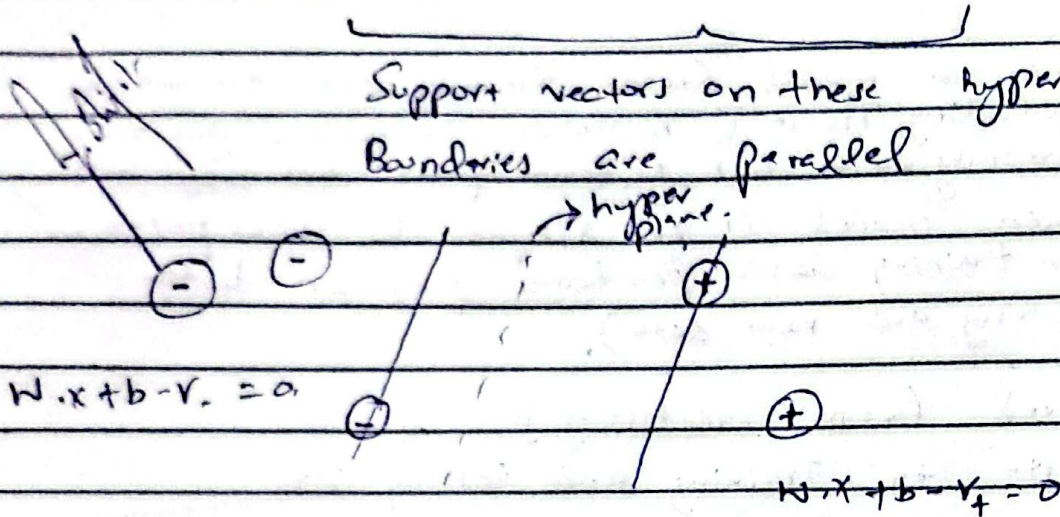 Support vectors on these hyper
Boundries are parallel
→ hyper
plane.
- - +
W.x + b - r. = 0
- +
W.x + b - r₊ = 0